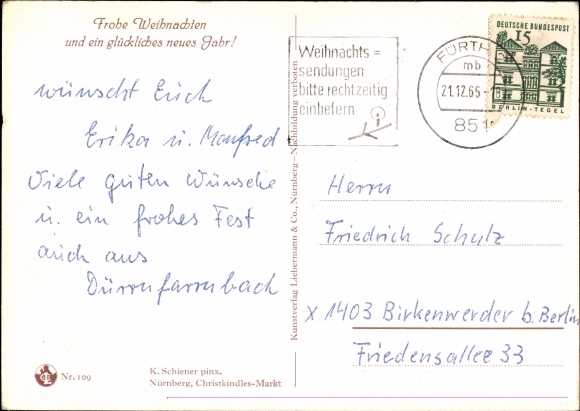 Frohe Weihnachten
und ein glückliches neues Jahr!
wünscht Euch
Erika u. Manfred
Viele guten Wünsche
u. ein frohes Fest
auch aus
Dürrnfarrnbach
Nr. 109
K. Schiener pinx.
Nürnberg, Christkindles-Markt
Kunstverlag Liebermann & Co., Nürnberg – Nachbildung verboten
Weihnachts=
sendungen
bitte rechtzeitig
einliefern
FÜRTH
mb
21.12.65-
851
DEUTSCHE BUNDESPOST
15
BERLIN-TEGEL
Herrn
Friedrich Schulz
X 1403 Birkenwerder b. Berlin
Friedensallee 33